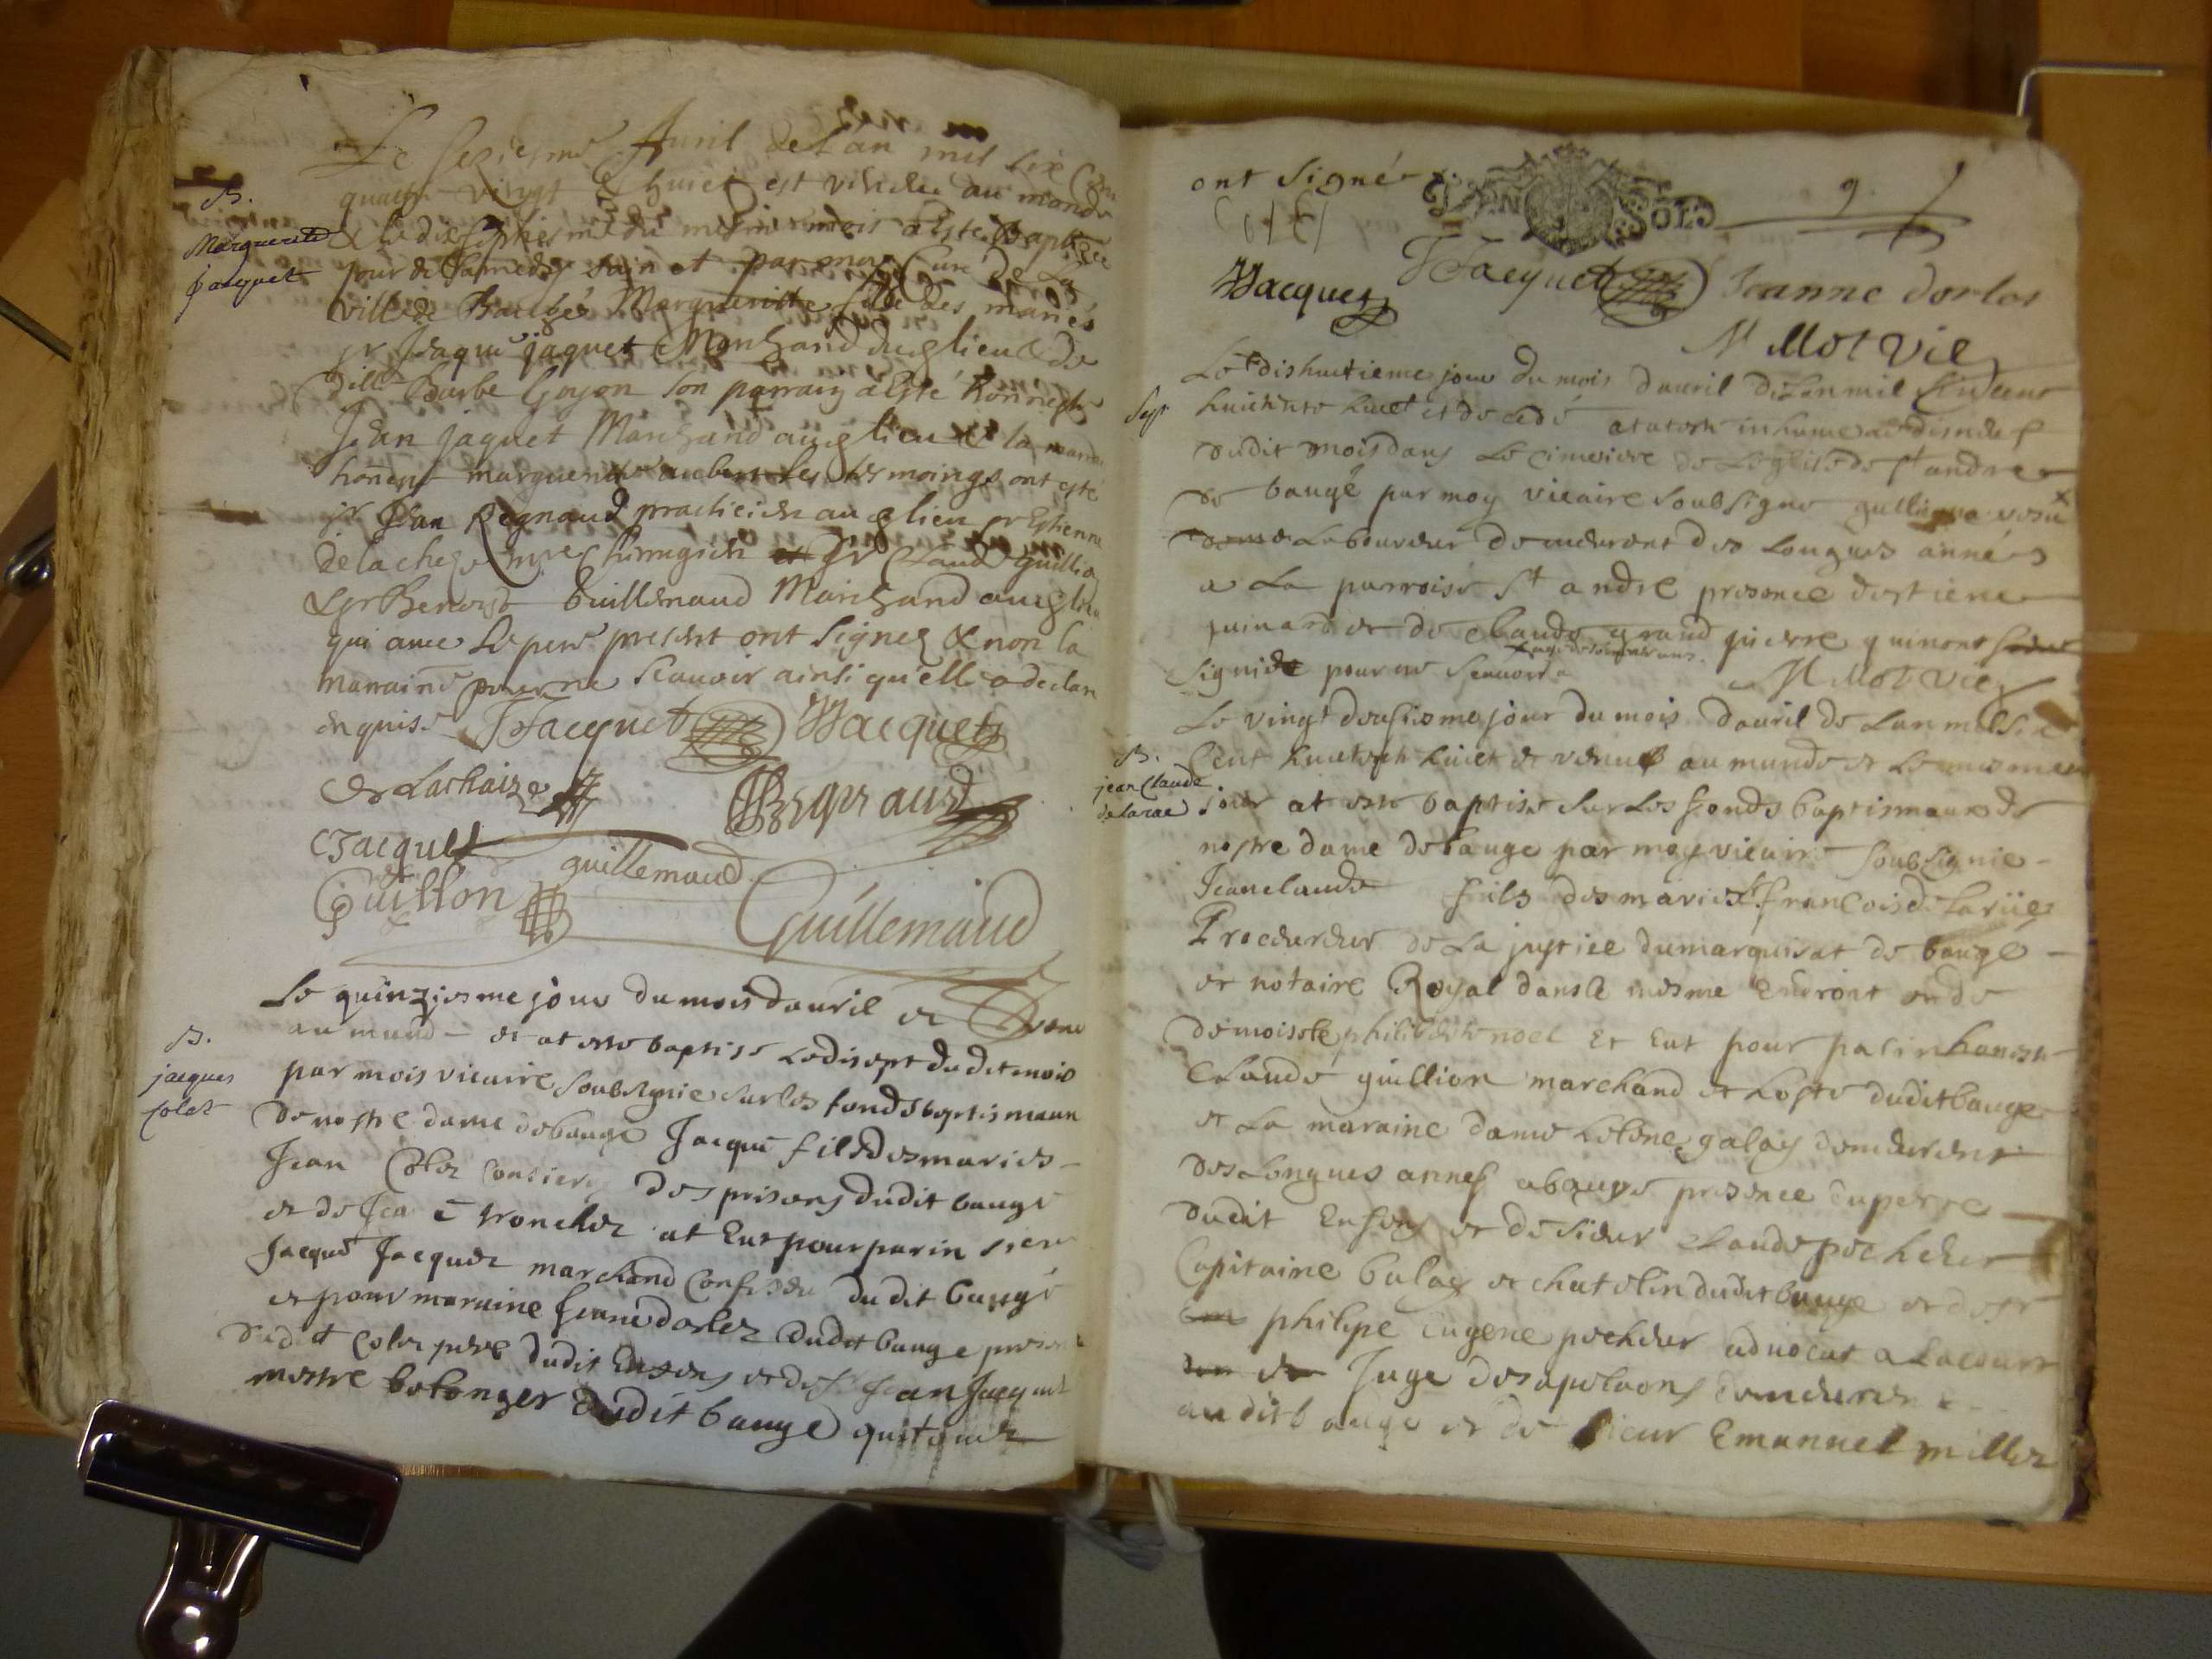 Le seziesme Auril de l'an mil six Cent
quattre vingt & huict est venue au monde
B.
Marguerite
jacquet
& le dix septiesme du mesme mois a esté Baptisée
jour de Samedy sainct par moy Curé de la
ville de Baugé Margueritte fille des mariés
sr Jaque jaquet Marchand dud lieu & de
dlle Barbe Goyon son parrain a esté honneste
Jean jaquet Marchand aud lieu & la marr
honeste marguerite aubert les tesmoings ont esté
sr Jean Regnaud practicien aud lieu sr Estienne
delacheze mre Chirurgien et sr Claude guillion
& sr Benoist Guillemaud Marchand aud lieu
qui auec le pere present ont signez & non la
marraine pour ne scauoir ainsi qu'elle a declaré
enquise JJacquet JJacquet
De Lachaize Regnaud
CJacquet guillemaud
Guillon Guillemaud
Le quinziesme jour du mois dauril et venu
B.
jacques
colet
au mund et at este baptise le disept dudit mois
par mois vicaire soubsignie sur les fonds baptismaun
de nostre dame de bauge Jacque fils des maries
Jean Colet Consierge des prisons dudit bauge
et de Jea e troncher at Eut pour parin sieur
Jacque Jacquet marchand dudit baugé
et pour maraine Jeane dorlet dudit bauge present
dudit Colet pere dudit Enfens et de sr Jean Jacquet
mestre bolonger dudit bauge quit
ont signé
DEN SOLS
9
JJacquet JJacquet Jeanne dorlot
M Mot vic
Le dishuitieme jour du mois dauril de Lan mil
Sep
huictante huict et decedé at ateste inhume le disneuf
dudit mois dans Le cimetiere de Leglise de st andre
de baugé par moy vicaire soubsigne
Laboureur demeurant des Longues années
a La parroise st andre presence destiene
guinard et de Claude grand pierre quinont
signie pour ne scauoir
M Mot vic
Le vingt deusiesme jour du mois dauril de Lan mil six
B.
jean Claude
delarue
Cent huictante huict et venus au munde et Le mesme
jour at este baptise sur Les fonds baptismaux de
nostre dame de bauge par moy vicaire soubsignie
Jean claude fuils des maries sr francois de Larüe
Procureur de La justice du marquisat de baugé
et notaire Royal dans le mesme Endroit et de
demoiselle philiberte noel Et Eut pour parin honeste
Claude guillion marchand et hoste dudit bauge
et La maraine dame Helene galay demeurent
des Longues annes a bauge presence du perre
dudit Enfens et de sieur Claude pocheur
Capitaine et chatelin dudit bauge et de sr
philipe Eugene pocheur aduocat a La cour
et Juge des apelaons demeuren
audit bauge et de sieur Emanuel millet